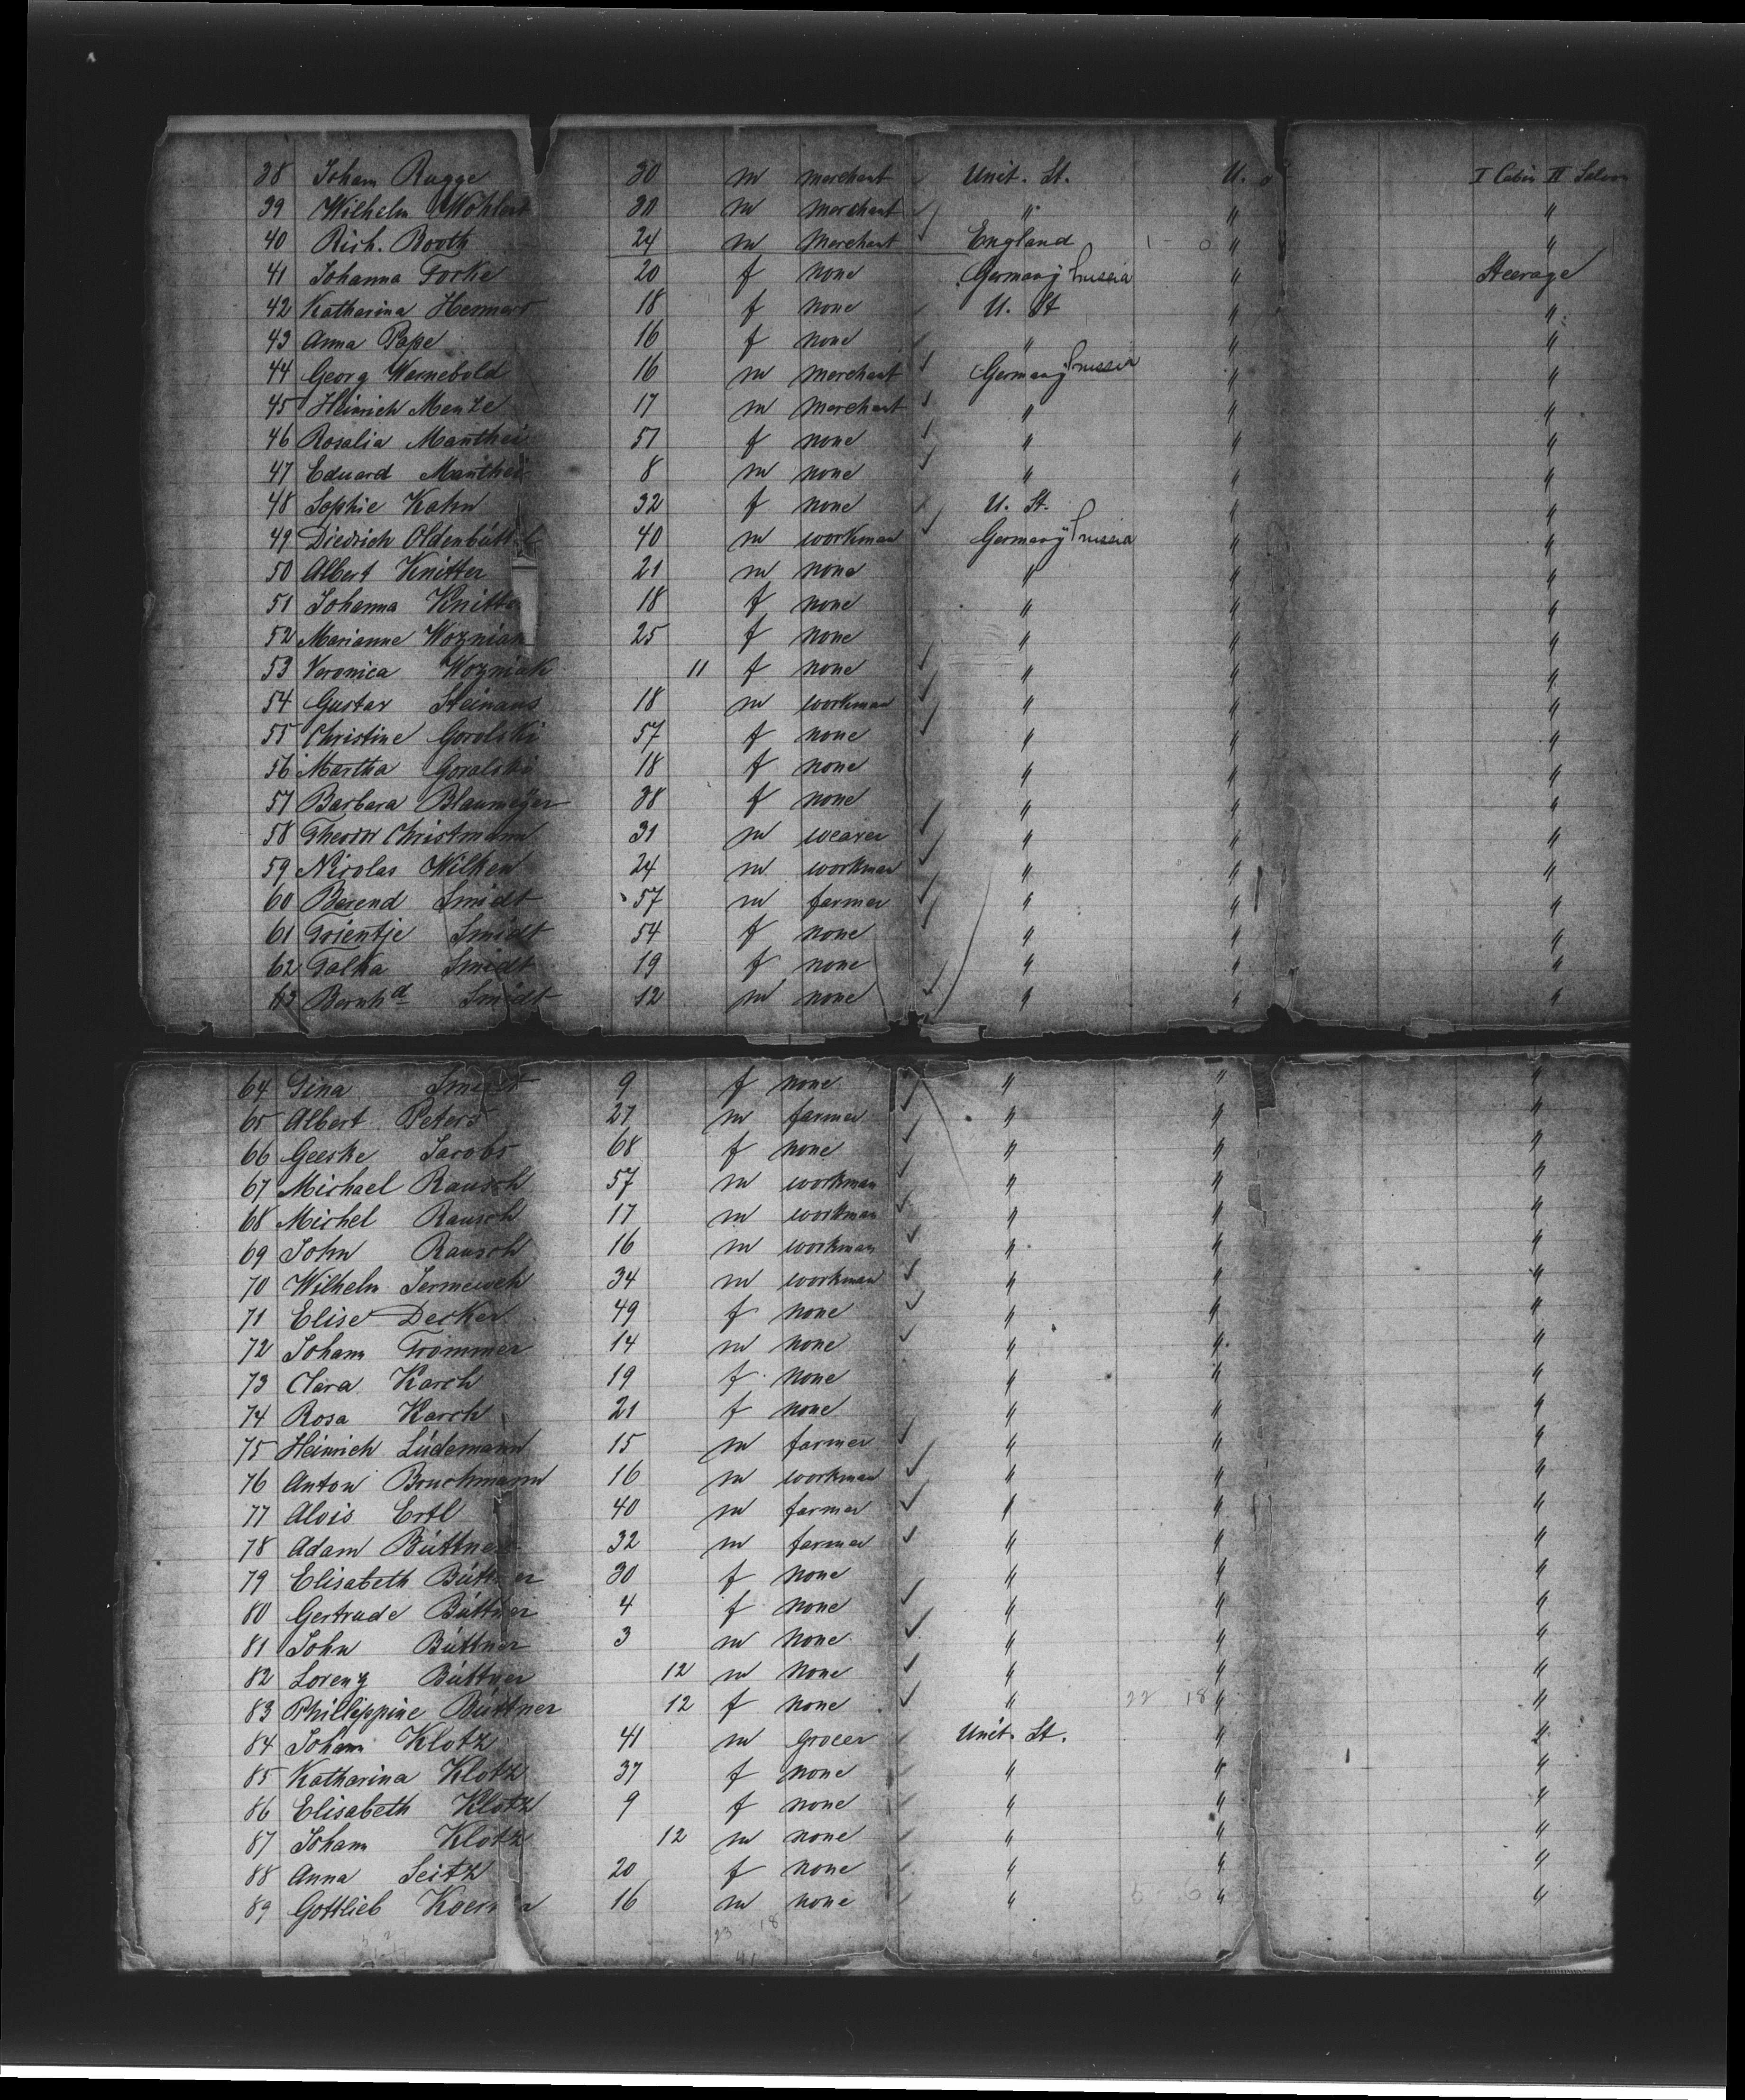 38 Johann Rugge 30 m merchant Unit. St. U. I Cabin II Saloon
39 Wilhelm Wöhlert m merchant " " "
40 Rich. Booth 24 m merchant England " "
41 Johanna Torke 20 f none Germany Prussia " Steerage
42 Katharina 18 f none U. St " "
43 Anna Pape 16 f none " " "
44 Georg Warnebold 16 m merchant Germany Prussia " "
45 Heinrich Menze 17 m merchant " " "
46 Rosalia Manthei 51 f none " " "
47 Eduard Manthei 8 m none " " "
48 Sophie Kahn 32 f none U. St. " "
49 Diedrich Oldenbüttel 40 m workman Germany Prussia " "
50 Albert Knitter 21 m none " " "
51 Johanna Knitter 18 f none " " "
52 Marianne Wozniak 25 f none " " "
53 Veronica Wozniak 11 f none " " "
54 Gustav Steinaus 18 m workman " " "
55 Christine Goralski 57 f none " " "
56 Martha Goralski 18 f none " " "
57 Barbara Blaumeyer 38 f none " " "
58 Theodor Christmann 31 m weaver " " "
59 Nicolas Wilken 24 m workman " " "
60 Berend Smidt 57 m farmer " " "
61 Trientje Smidt 54 f none " " "
62 Talka Smidt 19 f none " " "
63 Bernhd Smidt 12 m none " " "
64 Gina Smidt 9 f none " " "
65 Albert Peters 27 m farmer " " "
66 Geeske Jacobs 68 f none " " "
67 Michael Rausch 57 m workman " " "
68 Michel Rausch 17 m workman " " "
69 John Rausch 16 m workman " " "
70 Wilhelm 34 m workman " " "
71 Elise Decker 49 f none " " "
72 Johann Trommer 14 m none " " "
73 Clara Karch 19 f none " " "
74 Rosa Karch 21 f none " " "
75 Heinrich Lüdemann 15 m farmer " " "
76 Anton Bruchmann 16 m workman " " "
77 Alois Ertl 40 m farmer " " "
78 Adam Büttner 32 m farmer " " "
79 Elisabeth Büttner 30 f none " " "
80 Gertrude Büttner 4 f none " " "
81 John Büttner 3 m none " " "
82 Lorenz Büttner 12 m none " " "
83 Phillippine Büttner 12 f none " 22 18 " "
84 Johann Klotz 41 m grocer Unit. St. " "
85 Katharina Klotz 37 f none " " "
86 Elisabeth Klotz 9 f none " " "
87 Johann Klotz 12 m none " " "
88 Anna Seitz 20 f none " " "
89 Gottlieb 16 m none " " "
23 18
41